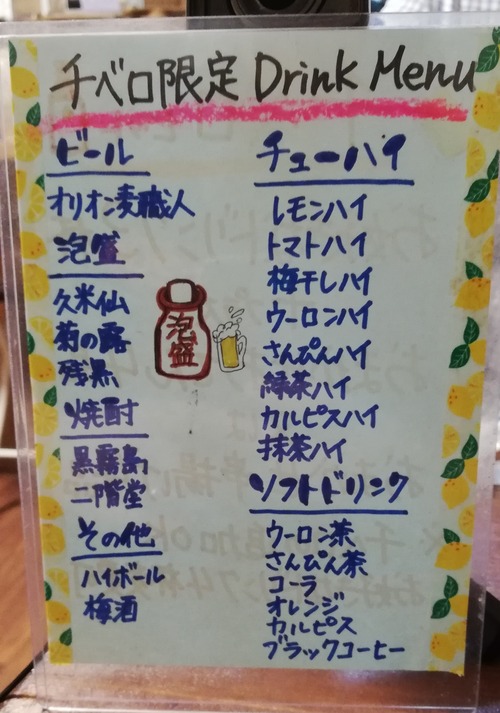 チベロ限定 Drink Menu
ビール
オリオン麦職人
泡盛
久米仙
菊の露
残黒
焼酎
黒霧島
二階堂
その他
ハイボール
梅酒
泡盛
チューハイ
レモンハイ
トマトハイ
梅干しハイ
ウーロンハイ
さんぴんハイ
緑茶ハイ
カルピスハイ
抹茶ハイ
ソフトドリンク
ウーロン茶
さんぴん茶
コーラ
オレンジ
カルピス
ブラックコーヒー